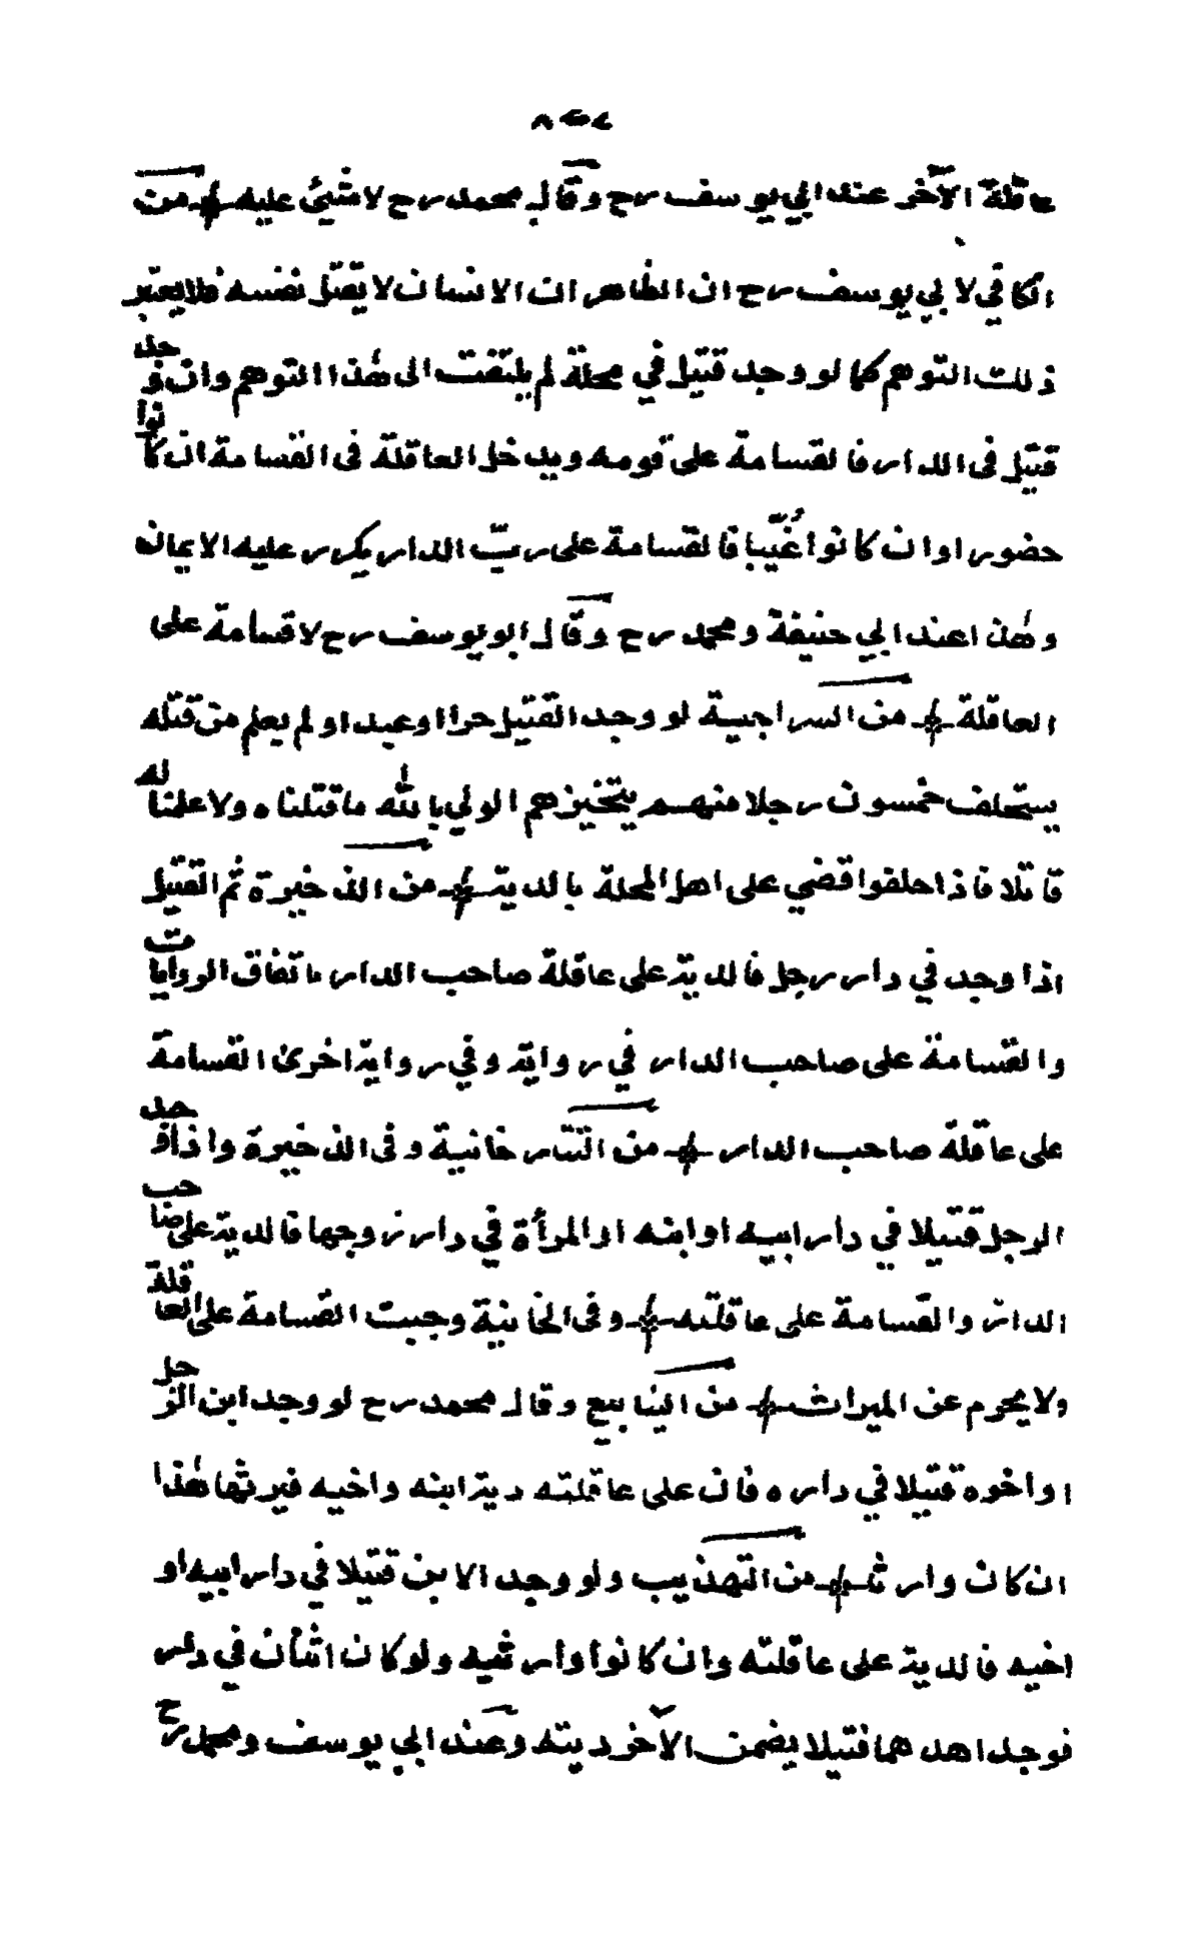 عاقلة الآخر عند ابي يوسف رح وقال محمد رح لا شيئ عليه من
الكافي لابي يوسف رح ان الظاهر ان الانسان لا يقتل نفسه فلا يعتبر
ذلك التوهم كما لو وجد قتيل في محلة لم يلتفت الى هٰذا التوهم وان وجد
قتيل فى الدار فالقسامة على قومه ويدخل العاقلة فى القسامة ان كانوا
حضورا وان كانوا غُيّبا فالقسامة على ربّ الدار يكرر عليه الايمان
وهٰذا عند ابي حنيفة ومحمد رح وقال ابو يوسف رح لا قسامة على
العاقلة من السراجية لو وجد القتيل حرا او عبدا ولم يعلم من قتله
يستحلف خمسون رجلا منهم يتخيرهم الولي بالله ما قتلناه ولا علمنا له
قاتلا فاذا حلفوا قضي على اهل المحلة بالدية من الذخيرة ثم القتيل
اذا وجد في دار رجل فالدية على عاقلة صاحب الدار باتفاق الروايات
والقسامة على صاحب الدار في رواية وفي رواية اخرى القسامة
على عاقلة صاحب الدار من التتارخانية وفى الذخيرة واذا وجد
الرجل قتيلا في دار ابيه او ابنه او المرأة في دار زوجها فالدية على صاحب
الدار والقسامة على عاقلته وفى الخانية وجبت القسامة على العاقلة
ولا يحرم عن الميراث من الينابيع وقال محمد رح لو وجد ابن الرجل
او اخوه قتيلا في داره فان على عاقلته دية ابنه واخيه فيرثها هٰذا
ان كان وارثه من التهذيب ولو وجد الابن قتيلا في دار ابيه او
اخيه فالدية على عاقلته وان كانوا وارثيه ولو كان اثنان في دار
فوجد احدهما قتيلا يضمن الآخر ديته وعند ابي يوسف ومحمد رح